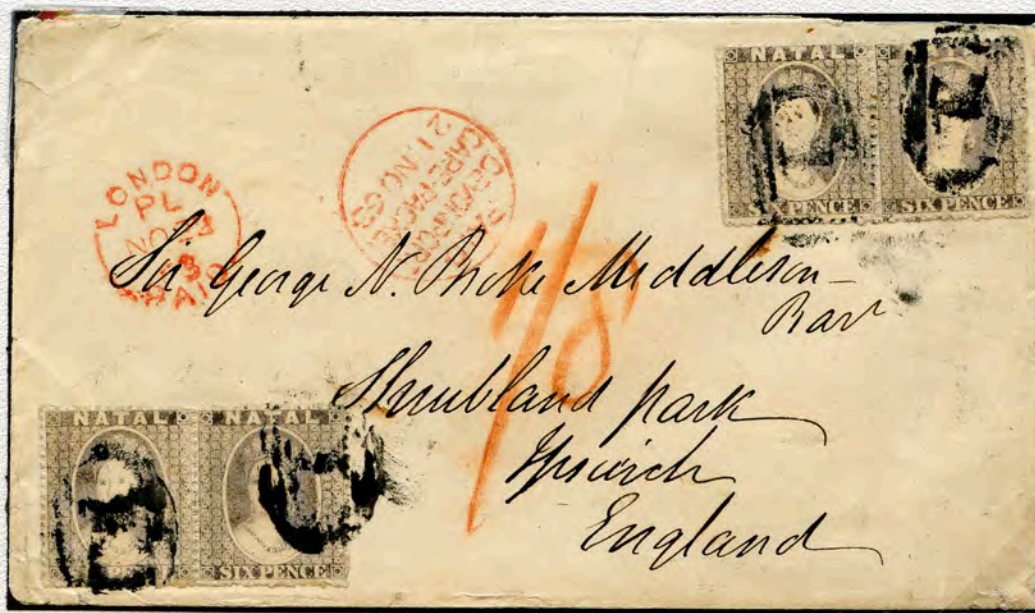 NATAL
SIX PENCE SIX PENCE
LONDON
PL
NO
PAID
DEVONPORT
CAPE PACKET
21 NO 63
1/8
Sir George N. Broke Middleton –
Bart
Shrubland park
Ipswich
England
NATAL NATAL
SIX PENCE